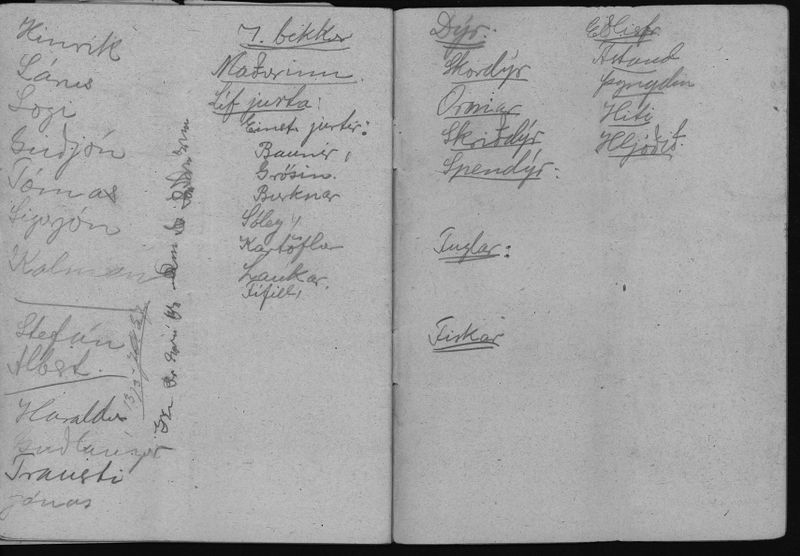 Hinrik
Láres
Logi
Guðjón
Tómas
Sigjón
Kalmán
Stefán
Albert.
Haraldur
Trausti
Jónas
7. bekkur
Maðurinn.
Líf jurta:
Einst. jurtir:
Baunir,
Grösin.
Burknar
Sóley,
Kartöflur
Laukar.
Fífill,
Dýr:
Skordýr
Ormar
Skriðdýr
Spendýr:
Fuglar:
Fiskar
Eðlisfr
Ástand
þyngdin
Hiti
Hljóðið.